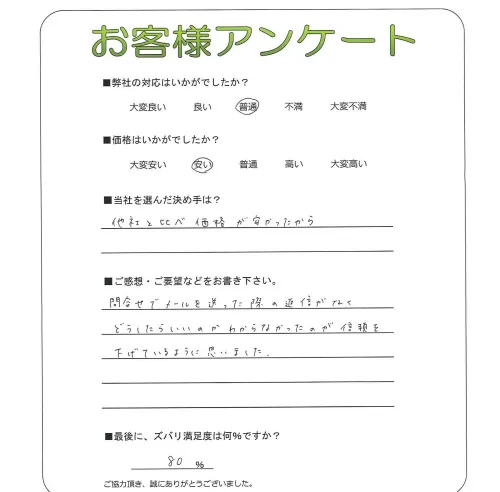 お客様アンケート
■弊社の対応はいかがでしたか？
大変良い 良い 普通 不満 大変不満
■価格はいかがでしたか？
大変安い 安い 普通 高い 大変高い
■当社を選んだ決め手は？
他社と比べ価格が安かったから
■ご感想・ご要望などをお書き下さい。
問合せでメールを送った際の返信がなく
どうしたらいいのかわからなかったのが信頼を
下げているように思いました.
■最後に、ズバリ満足度は何％ですか？
80 %
ご協力頂き、誠にありがとうございました。